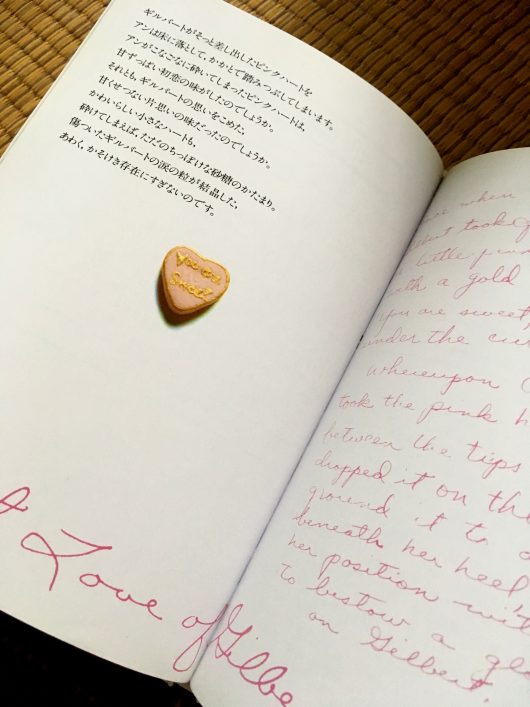 ギルバートがそっと差し出したピンクハートを
アンは床に落として、かかとで踏みつぶしてしまいます。
アンがこなごなに砕いてしまったピンクハートは、
甘ずっぱい初恋の味がしたのでしょうか。
それとも、ギルバートの思いをこめた、
甘くせつない片思いの味だったのでしょうか。
かわいらしい小さなハートも、
砕けてしまえば、ただのちっぽけな砂糖のかたまり。
傷ついたギルバートの涙の粒が結晶した、
あわく、かそけき存在にすぎないのです。
You are
Sweet
Love of Gilbe
when
took
little pin
with a gold
you are sweet,
under the cu
whereupon
took the pink h
between the tips
dropped it on the
ground it to
beneath her heel,
her position wit
to bestow a gl
on Gilbert.